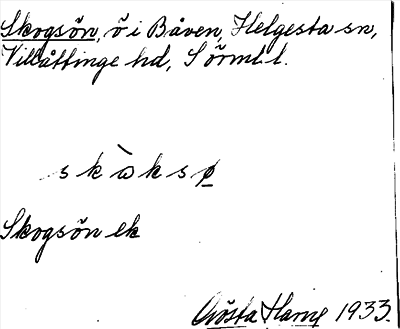 Skogsön, ö i Båven, Helgesta sn,
Villåttinge hd, Sörml. l.
skὼksø
Skogsön ek
Gösta Hamg 1933.